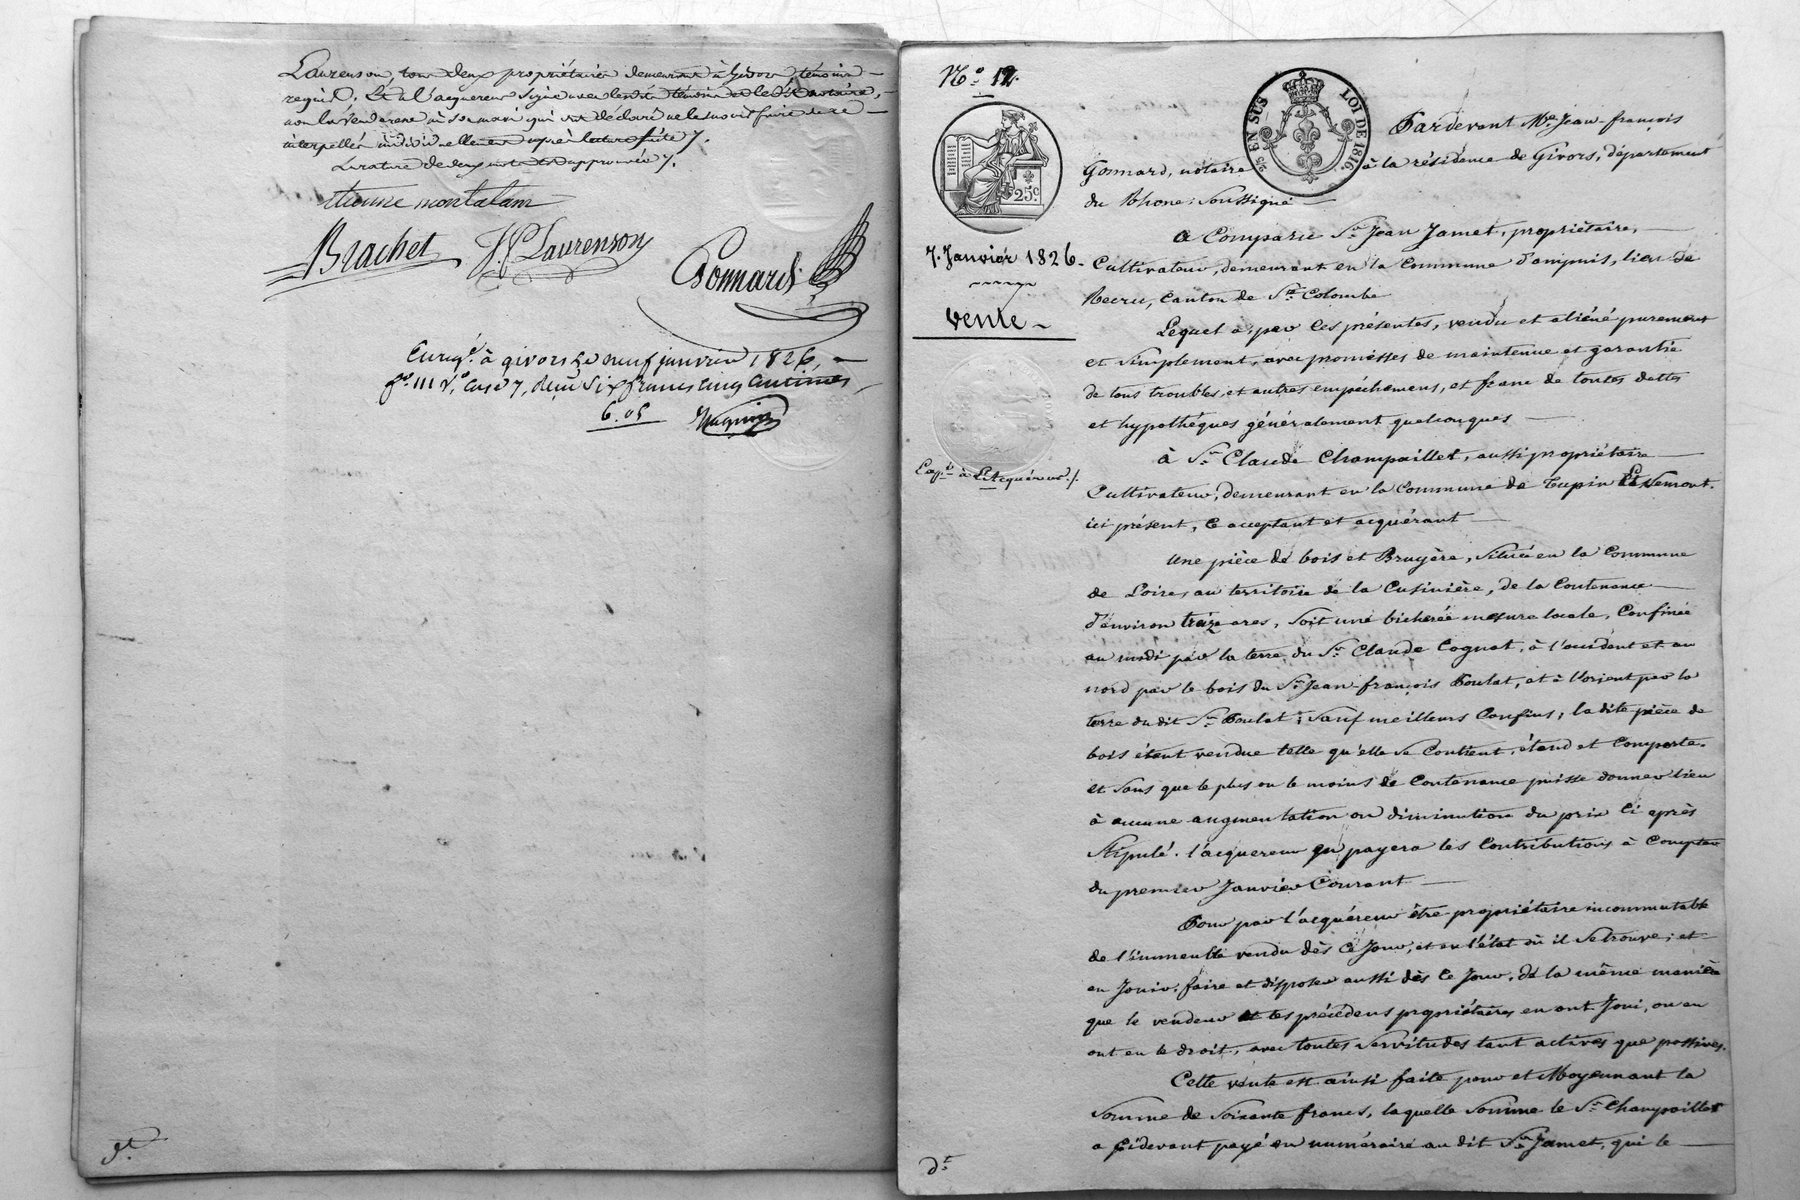 Laurenson, tous deux propriétaires demeurant à Givors, témoins
requis. Et a l'acquereur signé avec lesdits témoins et le dit notaire,
non la venderesse ni son mari qui ont déclaré ne le savoir faire de ce
interpellés individuellement après lecture faite /.
La rature de deux mots est approuvée /.
etienne montalam
Brachet J. P. Laurenson
Gonnard
Enregé. à givors le neuf janvier 1826,
fo. 111 Vo. case 7, reçu Six francs cinq centimes
6.05
No. 12.
25 EN SUS LOI DE 1816.
25c.
7. Janvier 1826.
Vente
Expn. à l'Acquéreur /.
Pardevant Me. Jean-françois
Gonnard, notaire à la résidence de Givors, département
du Rhone; Soussigné
A Comparu Sr. Jean Jamet, propriétaire,
Cultivateur, demeurant en la Commune d'ampuis, lieu de
Recru, canton de Ste. Colombe
Lequel a, par ces présentes, vendu et aliéné purement
et simplement, avec promesses de maintenue et garantie
de tous troubles, et autres empéchemens, et franc de toutes dettes
et hypothéques généralement quelconques
à Sr. Claude Champaillet, aussi propriétaire
Cultivateur, demeurant en la Commune de Tupin Et Semont.
ici présent, ce acceptant et acquérant
Une pièce de bois et Bruyère, Située en la Commune
de Loire, au territoire de la Cusinière, de la Contenance
d'environ treize ares, Soit une bicherée mesure locale, Confinée
au midi par la terre du Sr. Claude Cognat, à l'occident et au
nord par le bois du Sr. Jean-françois Poulat, et à l'orient par la
terre du dit Sr. Poulat; Sauf meilleurs Confins; la dite pièce de
bois étant vendue telle qu'elle se Contient, étend et Comporte.
et Sans que le plus ou le moins de Contenance puisse donner lieu
à aucune augmentation ou diminution du prix Ci après
Stipulé. l'acquereur en payera les Contributions à Compter
du premier Janvier Courant
Pour par l'acquéreur être propriétaire incommutable
de l'immeuble vendu dès Ce Jour, et en l'état où il Se trouve; et
en Jouir, faire et disposer aussi dès Ce Jour, de la même manière
que le vendeur et les précédens propriétaires en ont Joui, ou en
ont eu le droit, avec toutes Servitudes tant actives que passives.
Cette vente est ainsi faite pour et Moyennant la
Somme de Soixante francs, laquelle Somme le Sr. Champaillet
a Cidevant payé en numéraire au dit Sr. Jamet, qui le